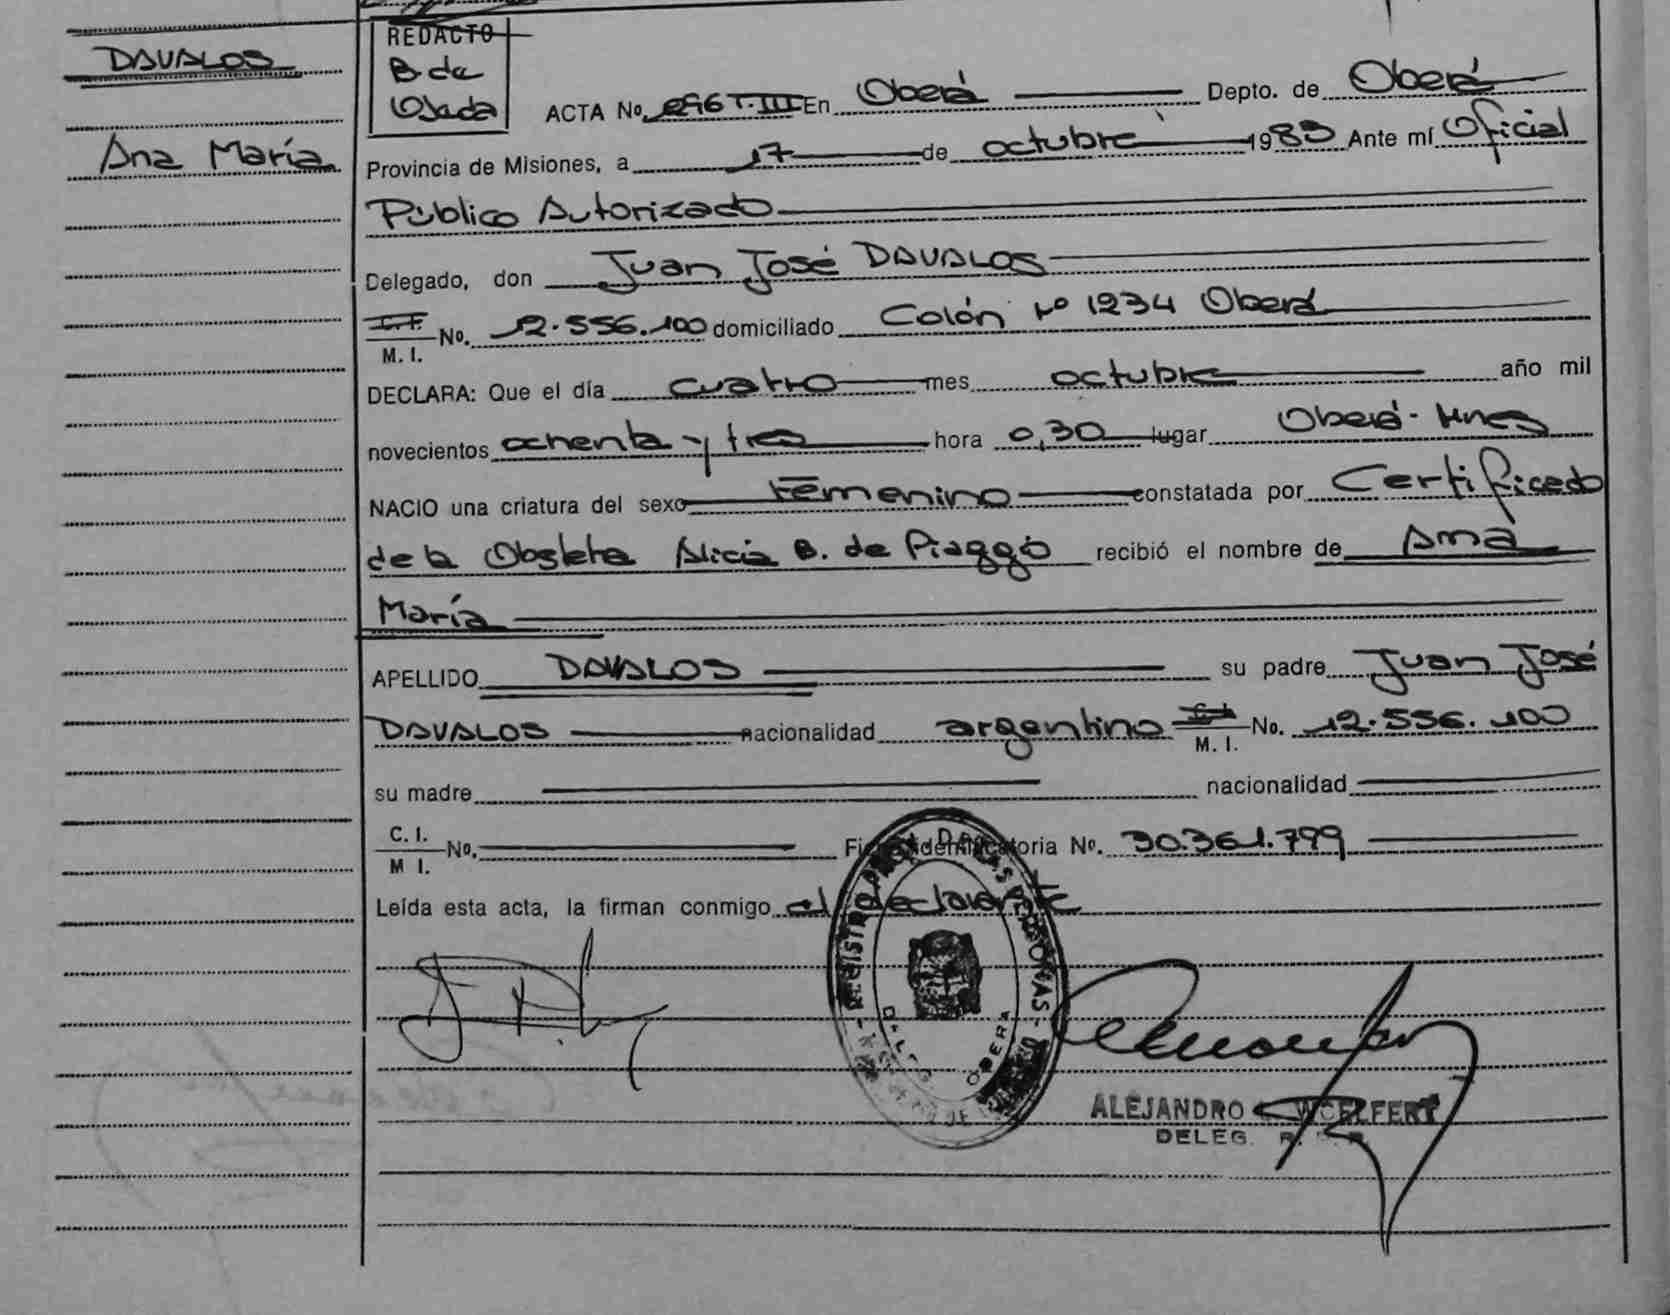 DAVALOS
Ana María
REDACTO
B. de
Ojeda
ACTA No. 296 T.III En Oberá Depto. de Oberá
Provincia de Misiones, a 17 de octubre 1983 Ante mí Oficial
Público Autorizado
Delegado, don Juan José DAVALOS
C.I.
M. I. No. 12.556.100 domiciliado Colón Nº 1234 Oberá
DECLARA: Que el día cuatro mes octubre año mil
novecientos ochenta y tres hora 0,30 lugar Oberá-Mnes
NACIO una criatura del sexo Femenino constatada por Certificado
de la Obsteta Alicia B. de Piaggo recibió el nombre de Ana
María
APELLIDO DAVALOS su padre Juan José
DAVALOS nacionalidad argentino C.I.
M. I. No. 12.556.100
su madre nacionalidad
C. I.
M I. No. Ficha Identificatoria No. 30.361.799
Leída esta acta, la firman conmigo el declarante
REGISTRO PROV. DE LAS PERSONAS
DELEG. OBERA
ALEJANDRO WOELFERT
DELEG. R. P.